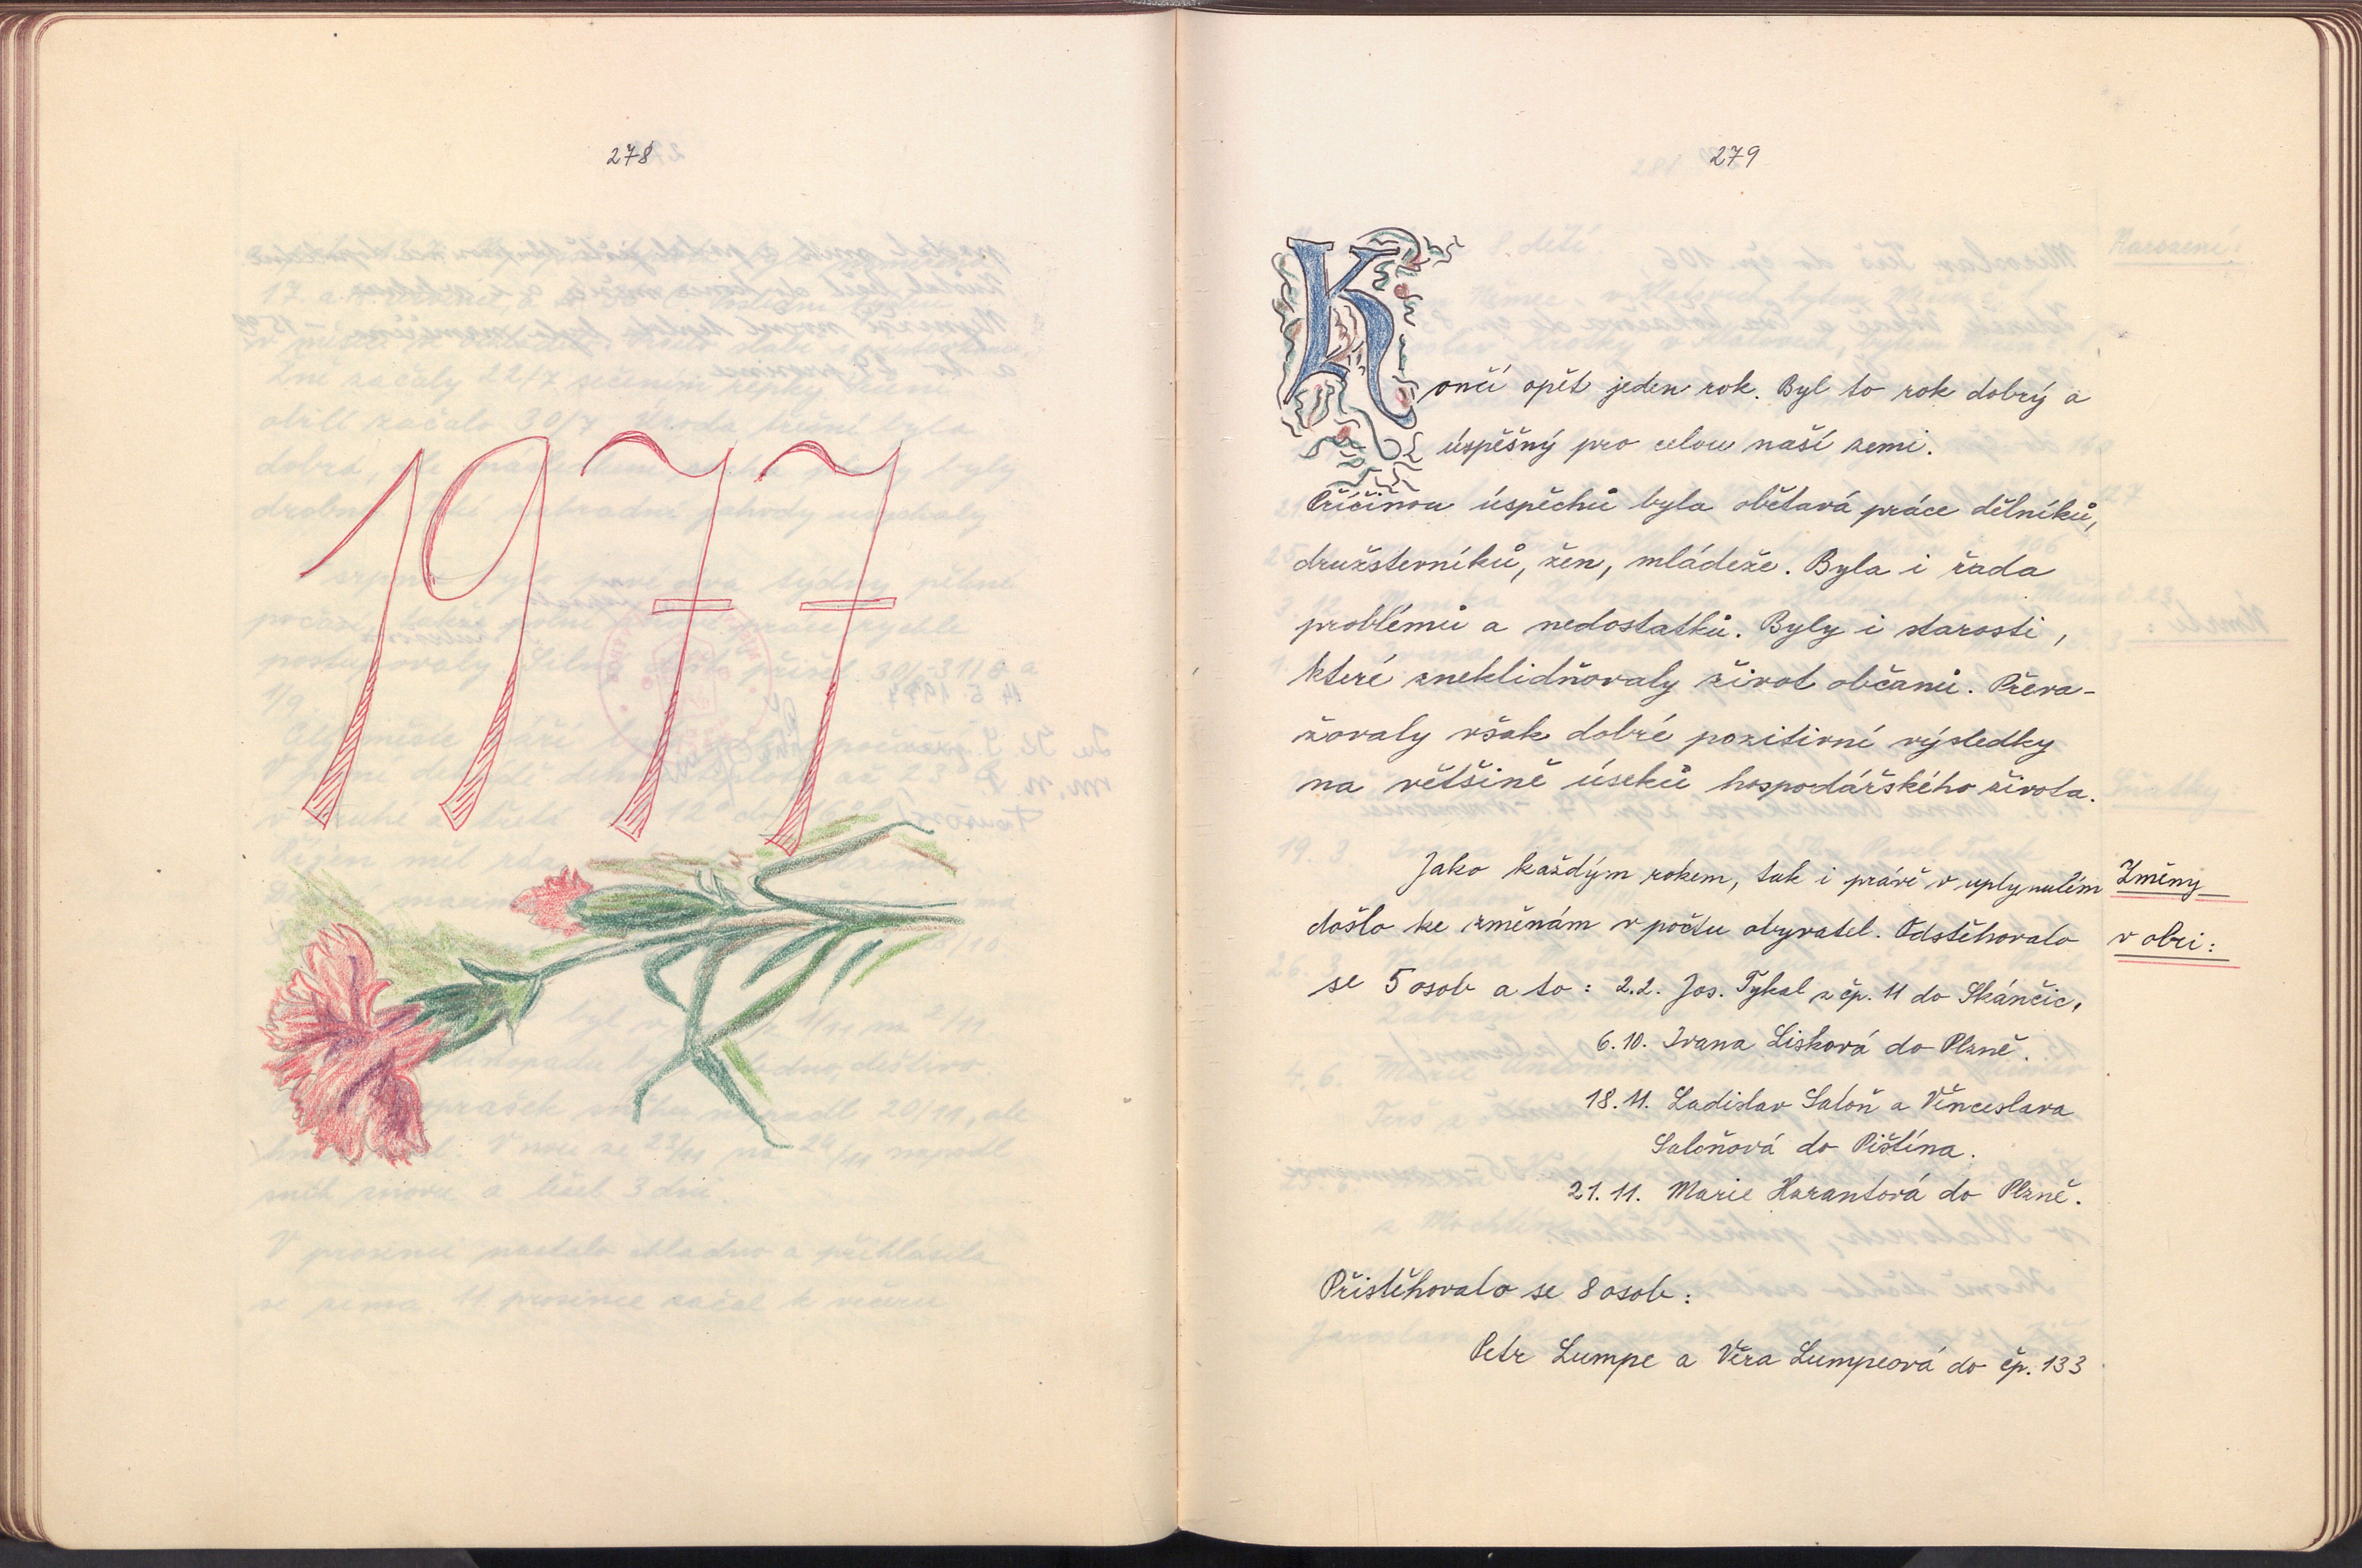 278
1977
279
Končí opět jeden rok. Byl to rok dobrý a
úspěšný pro celou naší zemi.
Příčinou úspěchů byla obětavá práce dělníků,
družsterníků, žen, mládeže. Byla i řada
problémů a nedostatků. Byly i starosti,
které zneklidňovaly život občanů. Převa-
žovaly však dobré pozitivní výsledky
na většině úseků hospodářského života.
Jako každým rokem, tak i právě v uplynulém
Změny
došlo ke změnám v počtu obyvatel. Odstěhovalo
v obci:
se 5 osob a to: 2.2. Jos. Tykal z čp. 11 do Skánčic,
6.10. Ivana Lisková do Plzně.
18.11. Ladislav Saloň a Věnceslava
Saloňová do Pištína.
21.11. Marie Harantová do Plzně.
Přistěhovalo se 8 osob:
Petr Lumpe a Věra Lumpeová do čp. 133